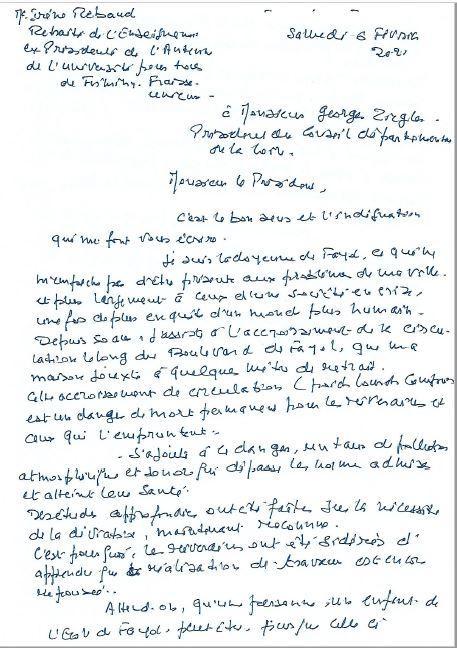 Me Irène Rebaud
Retraitée de l'Enseignement
ex Présidente de l'Antenne
de l'université pour tous
de Firminy. Fraisse
Unieux -
Samedi 6 Février
2021
à Monsieur Georges Ziegler
Président du Conseil départemental
de la Loire.
Monsieur le Président,
C'est le bon sens et l'indignation
qui me font vous écrire.
Je suis la doyenne de Fayol, ce qui ne
m'empêche pas d'être présente aux problèmes de ma ville
et plus largement à ceux d'une société en crise,
une fois de plus en quête d'un monde plus humain.
Depuis 50 ans, j'assiste à l'accroissement de la circu-
lation le long du Boulevard de Fayol, que ma
maison jouxte à quelques mètres de retrait.
Cet accroissement de circulation (poids lourds compris)
est un danger de mort permanent pour les riverains et
ceux qui l'empruntent.
- S'ajoute à ce danger, un taux de pollution
atmosphérique et sonore qui dépasse les normes admises
et atteint leur santé.
Des études approfondies ont été faites sur la nécessité
de la déviation, maintenant reconnue.
C'est pourquoi, les riverains ont été sidérés d'
apprendre que la réalisation de travaux est encore
repoussée..
Attend-on, qu'une personne, un enfant de
l'Ecole de Fayol, peut être, puisque celle ci